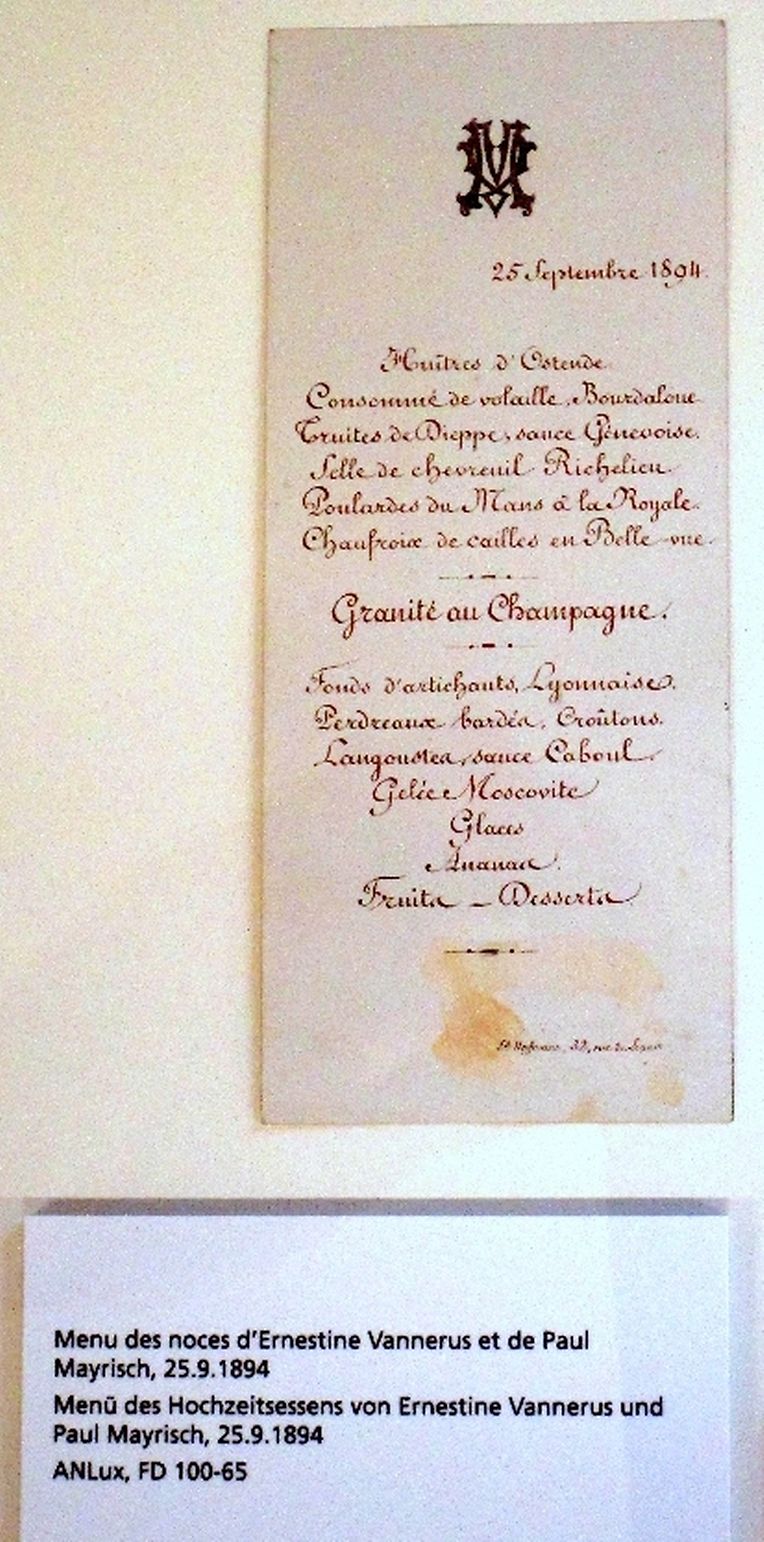 VM
25 Septembre 1894.
Huîtres d'Ostende.
Consommé de volaille, Bourdaloue
Truites de Dieppe, sauce Génevoise.
Selle de chevreuil Richelieu
Poulardes du Mans à la Royale.
Chaufroix de cailles en Belle-vue.
Granité au Champagne.
Fonds d'artichauts, Lyonnaise.
Perdreaux bardés, Croûtons.
Langoustes, sauce Caboul.
Gelée Moscovite
Glaces
Ananas.
Fruits – Desserts.
32, rue
Menu des noces d'Ernestine Vannerus et de Paul
Mayrisch, 25.9.1894
Menü des Hochzeitsessens von Ernestine Vannerus und
Paul Mayrisch, 25.9.1894
ANLux, FD 100-65